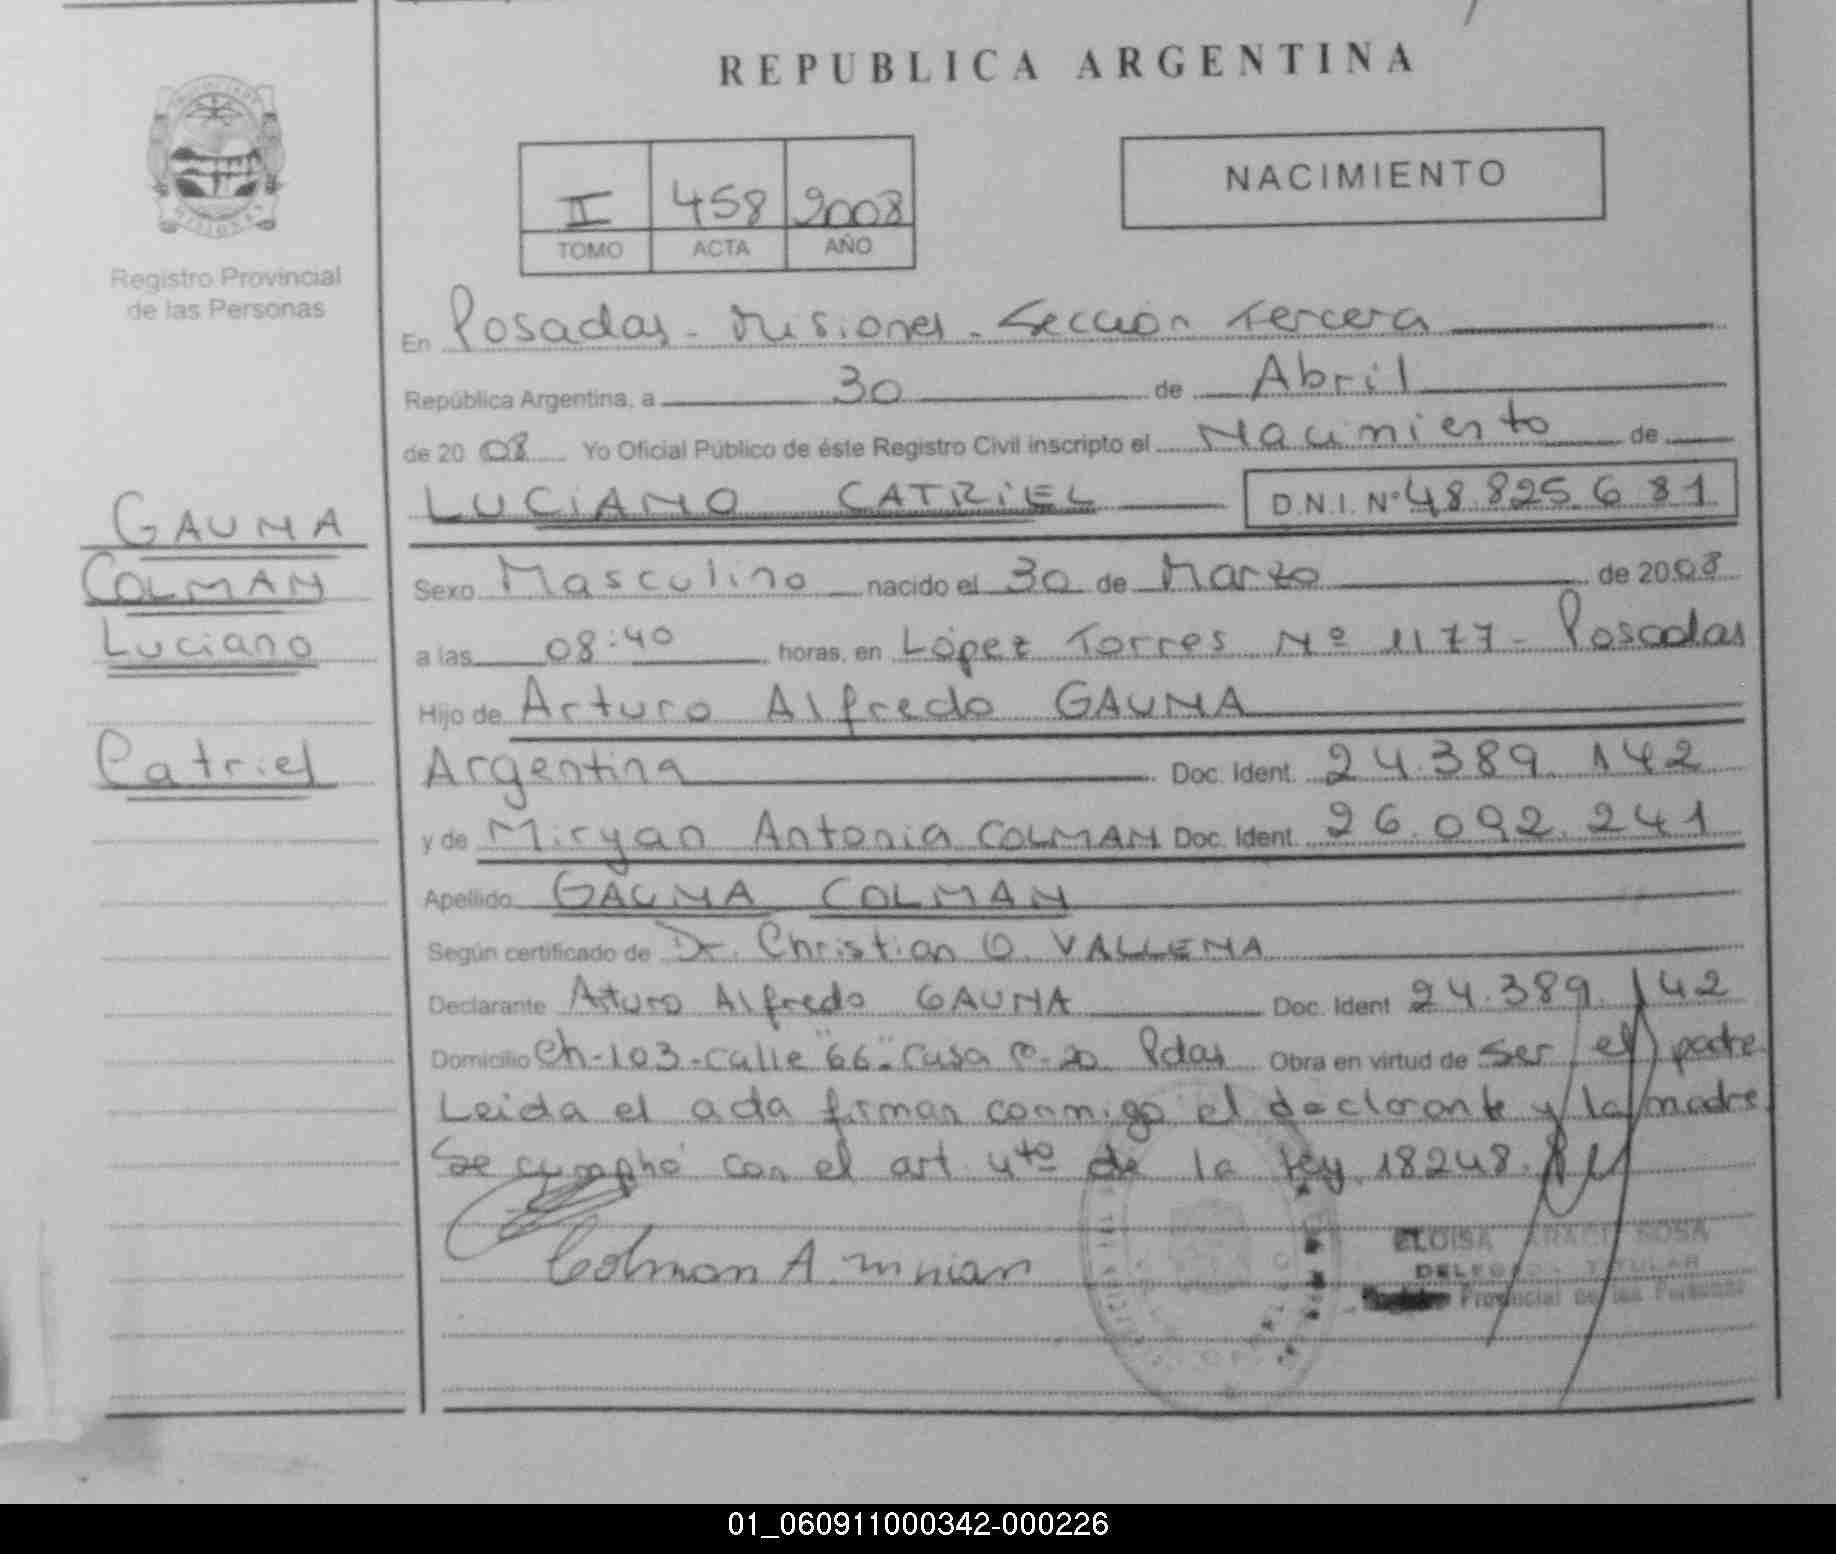 REPUBLICA ARGENTINA
II 458 2008
TOMO ACTA AÑO
NACIMIENTO
Registro Provincial
de las Personas
GAUNA
COLMAN
Luciano
Catriel
En Posadas - Misiones - Sección Tercera
República Argentina, a 30 de Abril
de 20 08 Yo Oficial Público de éste Registro Civil inscripto el Nacimiento de
LUCIANO CATRIEL D.N.I. Nº 48.825.681
Sexo Masculino nacido el 30 de Marzo de 2008
a las 08:40 horas, en López Torres Nº 1177 - Posadas
Hijo de Arturo Alfredo GAUNA
Argentina Doc. Ident. 24.389.142
y de Miryan Antonia COLMAN Doc. Ident. 26.092.241
Apellido GAUNA COLMAN
Según certificado de Dr. Christian O. VALLENA
Declarante Arturo Alfredo GAUNA Doc. Ident 24.389.142
Domicilio Ch-103-calle "66" Casa Pdas Obra en virtud de ser el padre
Leida el acta firman conmigo el declarante y la madre
Se cumplió con el art. 4to de la ley 18248.
Colman A. Mirian
ELOISA ARACI SOSA
DELEGADA TITULAR
Provincial de las Personas
01_060911000342-000226